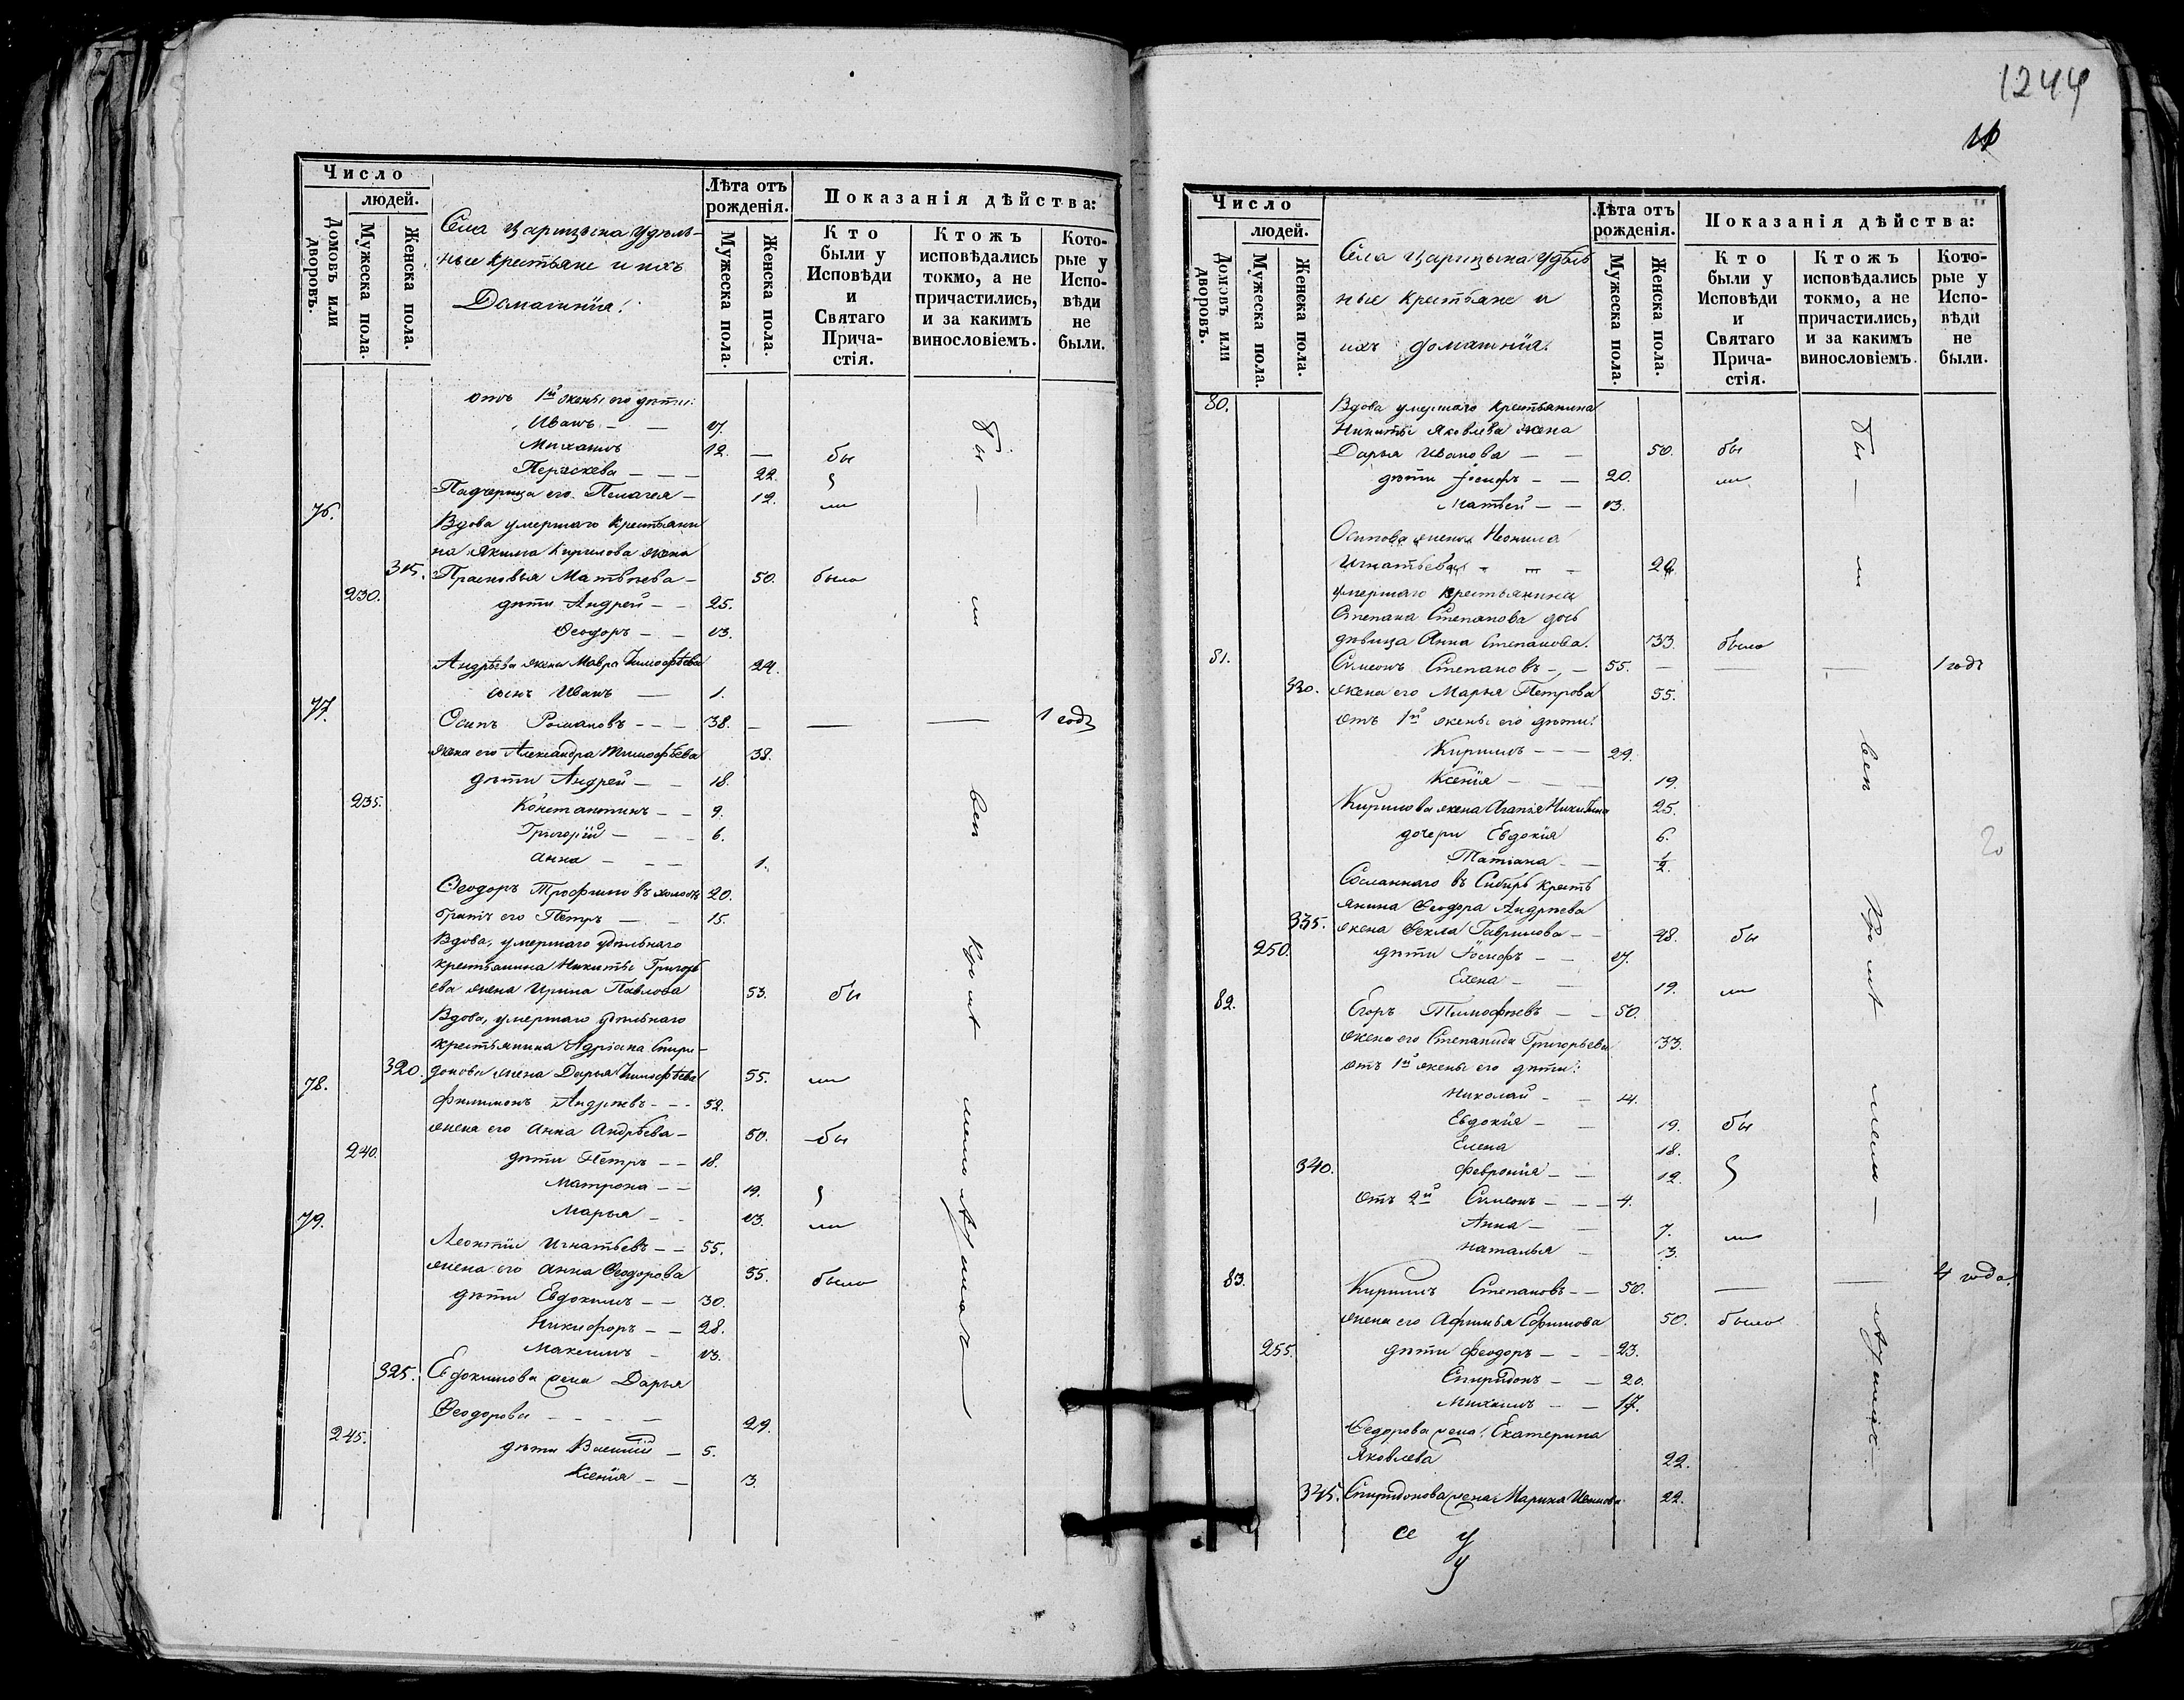 Число
людей.
Домовъ или дворовъ.
Мужеска пола.
Женска пола.
Села Царицына Удѣль-
ные крестьяне и ихъ
Домашнія:
Лѣта отъ рожденія.
Мужеска пола.
Женска пола.
Показанія дѣйства:
Кто были у Исповѣди и Святаго Прича-стія.
Ктожъ исповѣдались токмо, а не причастились, и за какимъ винословіемъ.
Кото-рые у Испо-вѣди не были.
отъ 1й жены его дѣти:
Иванъ — — 17.
Михаилъ 12. — бы
Параскева — — — 22.
Падчерица его Пелагея — 12. ли
76. Вдова умершаго крестьяни
на Якима Кирилова жена
315. Прасковья Матвѣева — 50. была
230. дѣти Андрей — — 25.
Ѳеодоръ — — 13.
Андрѣева жена Мавра Тимофѣева 24.
сынъ Иванъ — 1.
77. Осипъ Романовъ — — — 38. — — — 1 годъ
жена его Александра Тимофѣева 38.
дѣти Андрей — — 18.
235. Константинъ — — 9.
Григорій — — — 6.
Анна — — — 1.
Ѳеодоръ Трофимовъ холостъ 20.
братъ его Петръ — — 15.
Вдова, умершаго удѣльнаго
крестьянина Никиты Григорь
ева жена Ирина Павлова 53. бы
Вдова, умершаго удѣльнаго
крестьянина Адріана Спири-
320. донова жена Дарья Тимофѣева 55. ли
78. Филимонъ Андрѣевъ — — — 52.
жена его Анна Андрѣева — 50. бы
240. дѣти Петръ — — 18.
Матрона — — 19.
Марья — — 13. ли
79. Леонтій Игнатьевъ — — 55.
жена его Анна Ѳеодорова 55. была
дѣти Евдокимъ — — 30.
Никифоръ — — 28.
Максимъ — 13.
325. Евдокимова жена Дарья
Ѳеодорова — — — — 29.
245. дѣти Василій — 5.
Ксенія — — 3.
бы — ли всѣ кромѣ малолѣтныхъ
1244
Число
людей.
Домовъ или дворовъ.
Мужеска пола.
Женска пола.
Села Царицына Удѣль
ные крестьяне и
ихъ домашнія:
Лѣта отъ рожденія.
Мужеска пола.
Женска пола.
Показанія дѣйства:
Кто были у Исповѣди и Святаго Прича-стія.
Ктожъ исповѣдались токмо, а не причастились, и за какимъ винословіемъ.
Кото-рые у Испо-вѣди не были.
80. Вдова умершаго крестьянина
Никиты Яковлева жена
Дарья Иванова — — 50. бы
дѣти Іосифъ — — 20. ли
Матвей — — 13.
Осипова жена Неонила
Игнатьева — — — 24.
умершаго крестьянина
Степана Степанова дочь
дѣвица Анна Степанова. 33. была
81. Симеонъ Степановъ — — 55. — — — 1 годъ
330. жена его Марья Петрова 55.
отъ 1й жены его дѣти:
Кирилъ — — — 29.
Ксенія — — — 19.
Кирилова жена Агапія Никитина 25.
дочери Евдокія 6.
Татіана — — 1/2.
Сосланнаго въ Сибирь кресть
янина Ѳеодора Андрѣева
335. жена Ѳекла Гаврилова — — 48. бы
250. дѣти Іосифъ — — 17.
Елена — — 19. ли
82. Егоръ Тимофѣевъ — — 50.
жена его Степанида Григорьева 33.
отъ 1й жены его дѣти:
Николай — — 14.
Евдокія — — 19. бы
Елена 18.
340. Февронія — — 12.
отъ 2й Симеонъ — — — 4.
Анна — — 7. ли
Наталья — 3.
83. Кирилъ Степановъ — — 50. — — 4 года.
жена его Афимья Ефимова 50. была
255. дѣти Феодоръ — — — 23.
Спиридонъ — — 20.
Михаилъ — — 17.
Ѳедорова жена Екатерина
Яковлева 22.
345. Спиридонова жена Марина 22.
бы — ли всѣ кромѣ малолѣтныхъ
20